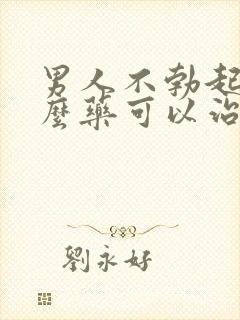 男人不勃起
麼藥可以治
劉永好